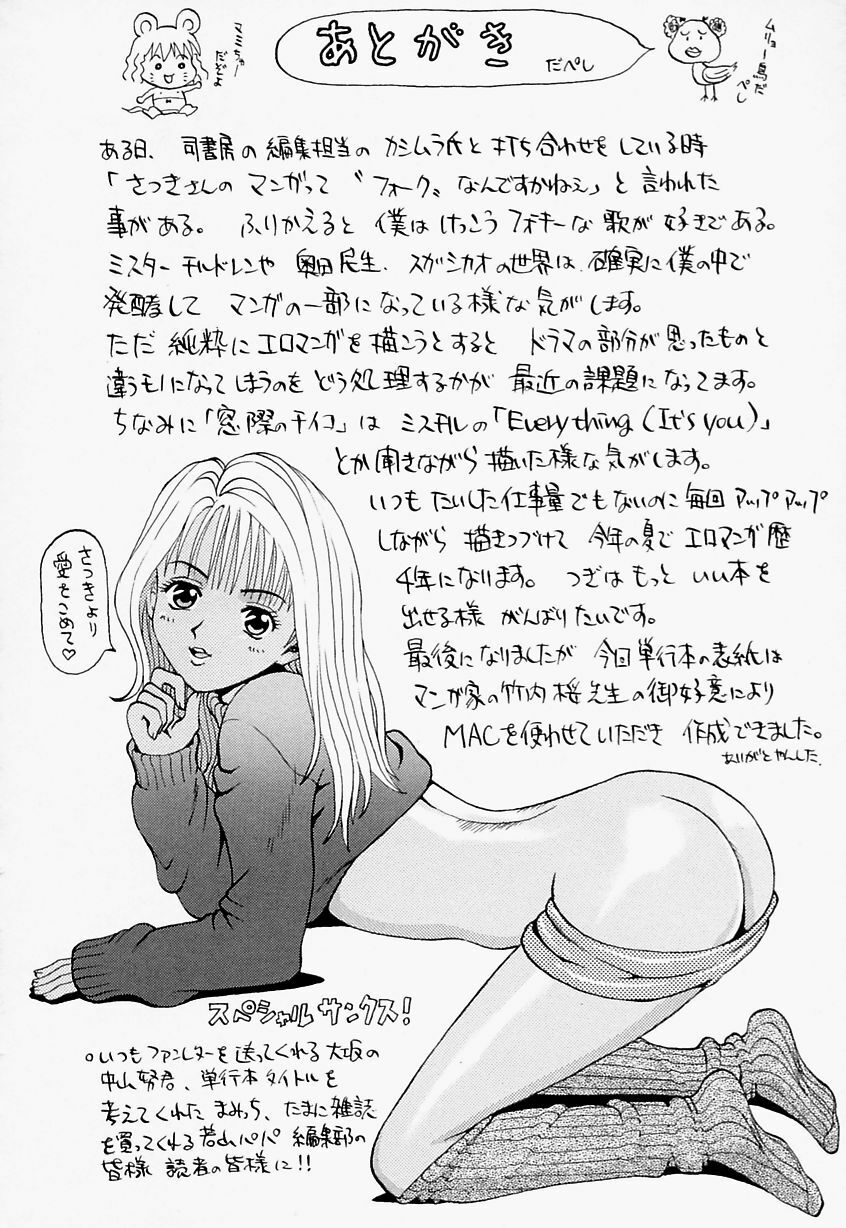 あとがき
だぺし
ムリョー鳥だ
ぺし
だぞよ
ある日、司書房の編集担当のカシムラ氏と打ち合わせをしている時
「さつきさんのマンガって〝フォーク〟なんですかねぇ」と言われた
事がある。ふりかえると僕はけっこうフォーキーな歌が好きである。
ミスターチルドレンや奥田民生、スガシカオの世界は、確実に僕の中で
発酵してマンガの一部になっている様な気がします。
ただ純粋にエロマンガを描こうとするとドラマの部分が思ったものと
違うモノになってしまうのをどう処理するかが最近の課題になってます。
ちなみに「窓際のチイコ」はミスチルの「Everything (It's you)」
とか聞きながら描いた様な気がします。
いつもたいした仕事量でもないのに毎回アップアップ
しながら描きつづけて今年の夏でエロマンガ歴
4年になります。つぎはもっといい本を
出せる様がんばりたいです。
最後になりましたが今回単行本の表紙は
マンガ家の竹内桜先生の御好意により
MACを使わせていただき作成できました。
ありがとやんした。
さつきより
愛をこめて♡
スペシャルサンクス!
○いつもファンレターを送ってくれる大坂の
中山努君、単行本タイトルを
考えてくれたまみっち、たまに雑誌
を買ってくれる若山パパ編集部の
皆様読者の皆様に!!